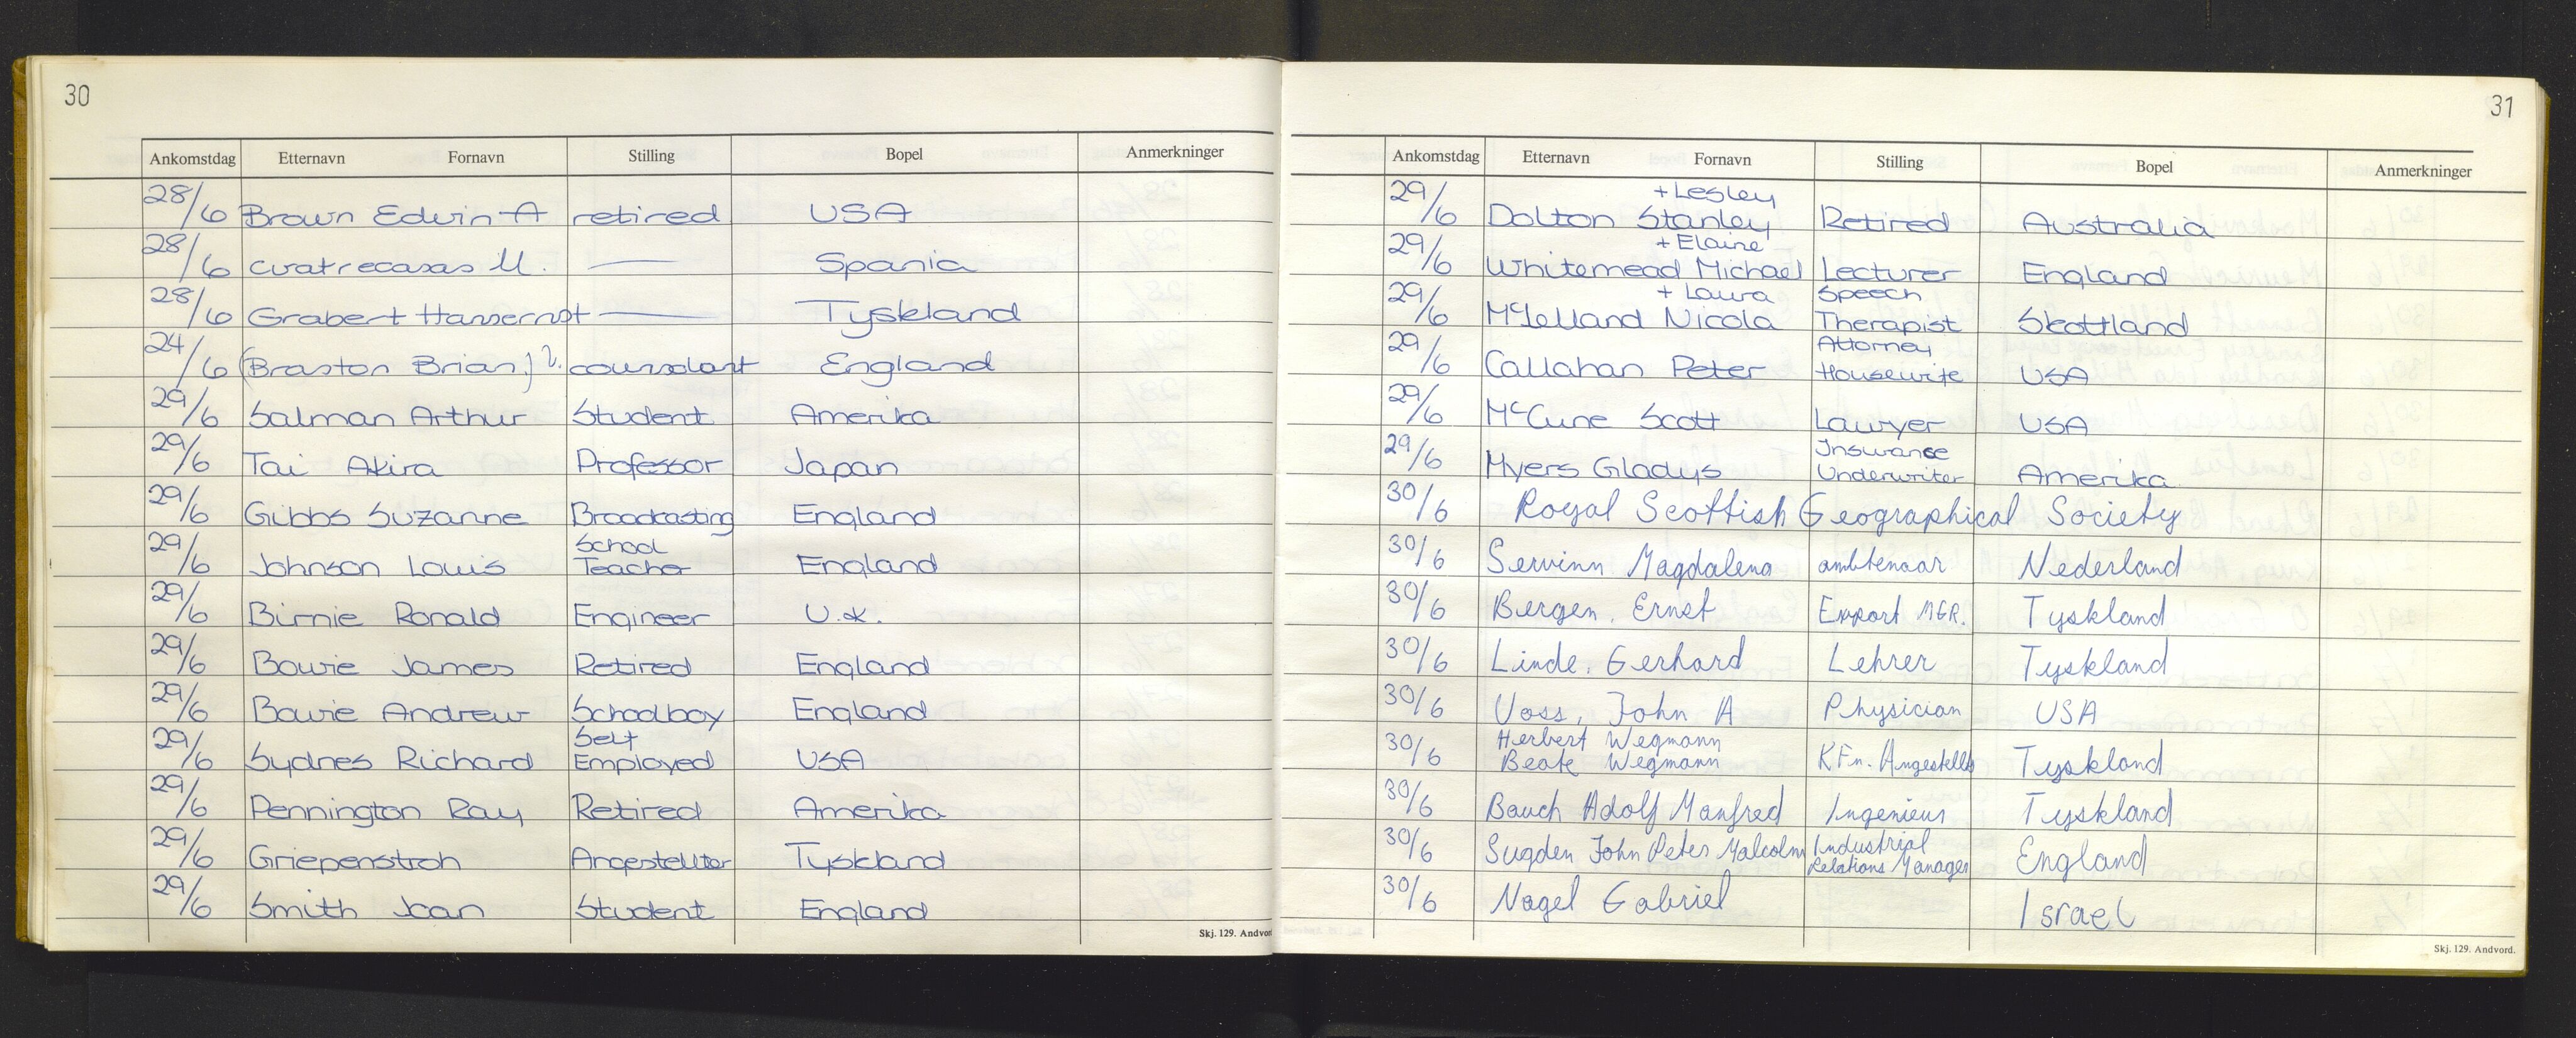 30
Ankomstdag Etternavn Fornavn Stilling Bopel Anmerkninger
28/6 Brown Edwin A retired USA
28/6 Cuatrecasas M. — Spania
28/6 Grabert Hansernst — Tyskland
24/6 (Braston Brian.)?. England
29/6 Salman Arthur Student Amerika
29/6 Tai Akira Professor Japan
29/6 Gibbs Suzanne Broadcasting England
29/6 Johnson Louis School Teacher England
29/6 Birnie Ronald Engineer U.K.
29/6 Bowie James Retired England
29/6 Bowie Andrew Schoolboy England
29/6 Sydnes Richard Self Employed USA
29/6 Pennington Ray Retired Amerika
29/6 Griepenstroh Angestellter Tyskland
29/6 Smith Joan Student England
Skj. 129. Andvord
31
Ankomstdag Etternavn Fornavn Stilling Bopel Anmerkninger
+ Lesley
29/6 Dolton Stanley Retired Australia
+ Elaine
29/6 Whitemead Michael Lecturer England
+ Laura Speech
29/6 McLelland Nicola Therapist Skottland
Attorney
29/6 Callahan Peter Housewife USA
29/6 McCune Scott Lawyer USA
Insurance
29/6 Myers Gladys Underwriter Amerika
30/6 Royal Scottish Geographical Society
30/6 Servinn Magdalena ambtenaar Nederland
30/6 Bergen, Ernst Export MGR. Tyskland
30/6 Linde, Gerhard Lehrer Tyskland
30/6 Voss, John A Physician USA
Herbert Wegmann
30/6 Beate Wegmann KFn. Angestellte Tyskland
30/6 Bauch Adolf Manfred Ingenieur Tyskland
30/6 Sugden John Peter Malcolm Industrial Relations Manager England
30/6 Nagel Gabriel Israel
Skj. 129. Andvord.